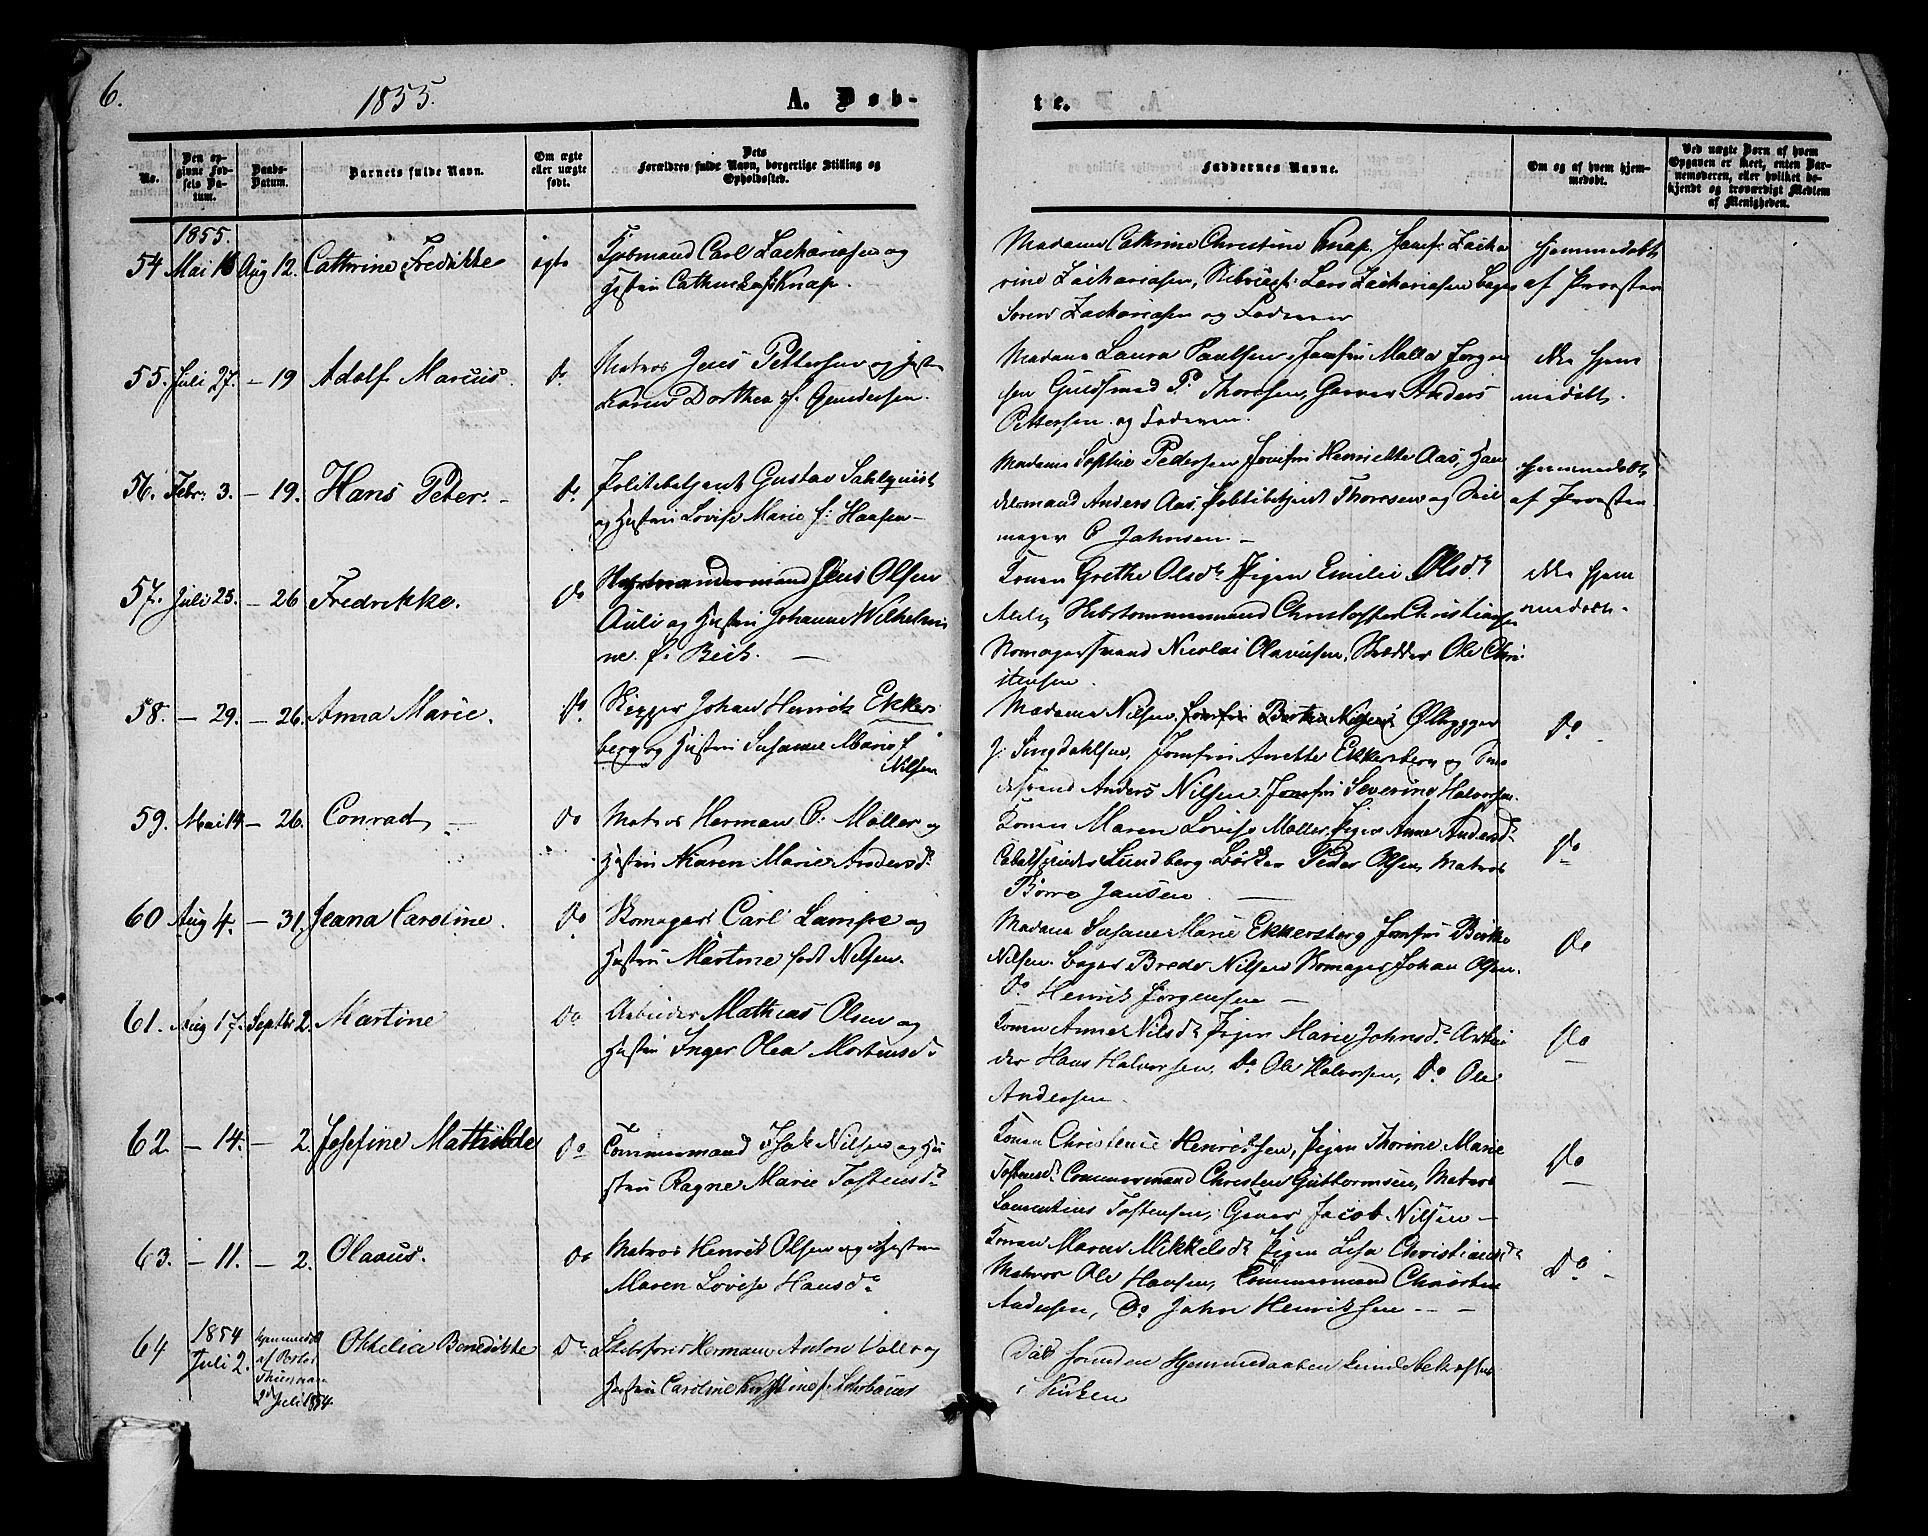 6.
1855.
A. Døb-
te.
No.
Den opgivne Fødsels Datum.
Daabs-Datum.
Barnets fulde Navn.
Om ægte eller uægte født.
Dets Forældres fulde Navn, borgerlige Stilling og Opholdssted.
Faddernes Navne.
Om og af hvem hjemmedøbt.
Ved uægte Børn af hvem Opgaven er skeet, enten Barnemoderen, eller hvilket bekjendt og troværdigt Medlem af Menigheden.
1855.
54 Mai 16 Aug 12. Cathrine Fredrikke ægte
Carl Zachariasen og
Hustru Knap.
Madame Cathrine Christine Knap, Jomfr: Zacha
rine Zachariasen, Lars Zachariasen, Bager
Søren Zachariasen og Faderen
Hjemmedøbt
af Provsten
55. Juli 27. – 19 Adolf Marcus. do
Matros Jens Pettersen og Hustru
Karen Dorthea f. Gundersen.
Madame Laura Paulsen, Jomfru Malla Jørgen
sen Guldsmed P. Thoresen, Garver Anders
Pettersen og Faderen.
ikke hjem
medøbt.
56. Febr: 3. – 19. Hans Peter. – do
Politibetjent Gustav Sahlquist
og Hustru Lovise Marie f: Hansen –
Madame Sophie Pedersen Jomfru Henriette Aas, Han
delsmand Anders Aas, Politibetjent Thoresen og Seil
mager C Johnsen –
Hjemmedøbt
af Provsten.
57. Juli 23. – 26 Fredrikke. do
Jens Olsen
Auli og Hustru Johanne Wilhelmi
ne f: Beck. –
Konen Grethe Olsdr Pigen Emilie Olsdr
Auli, Christoffer Christiansen
Nicolai Olavesen, Skrædder Ole Chri
stensen.
ikke hjem
medøbt.
58. – 29. – 26. Anna Marie. do
Skipper Johan Henrik Ekkers
berg og Hustru Susanne Marie f.
Nilsen
Madame Nilsen, Jomfru Berthe Nilsen
J. Singdahlsen, Jomfru Anette Ekkersberg og
Anders Nilsen Jomfru Severine Halvorsen.
Do
59. Mai 14 – 26. Conrad – do
Matros Herman C: Møller og
Hustru Karen Marie Andersdr
Konen Maren Lovise Møller, Pigen Anne Andersdr
Lundberg Peder Olsen, Matros
Børre Jansen –
Do
60 Aug 4. – 31. Jeana Caroline. do
Skomager Carl Lampe og
Hustru Martine født Nilsen.
Madame Susanne Marie Ekkersberg Jomfru Birthe
Nilsen. Bager Brede Nilsen Skomager Johan Olsen.
Do Henrik Jørgensen –
Do
61. Aug 17. Septbr 2. Martine do
Arbeider Mathias Olsen og
Hustru Inger Olea Mortensdr
Konen Anne Nilsdr Pigen Marie Johnsdr Arbei
der Hans Halvorsen, Do Ole Halvorsen, Do Ole
Andersen.
Do
62 – 14. – 2. Josefine Mathilde do
Tømmermand Isak Nilsen og Hu
stru Ragne Marie Tostensdr
Konen Christence Henriksen, Pigen Thorine Marie
Tostensdr Tømmermand Christen Guttormsen, Matros
Laurentius Tostensen, Jacob Nilsen –
Do
63. – 11. – 2. Olavus. do
Matros Henrik Olsen og Hustru
Maren Lovise Hansdr
Konen Maren Mikkelsdr Pigen Lisa Christiansdr
Matros Ole Hansen, Tømmermand Christen
Andersen, Do John Henriksen – –
Do
64 1854 Juli 2. Hjemmedøbt
af
2 Juli 1854
Othelia Benedikte Do
Skibsfører Herman Anton Valle og
Hustru Caroline f:
Daab Hjemmedaaben
i Kirken